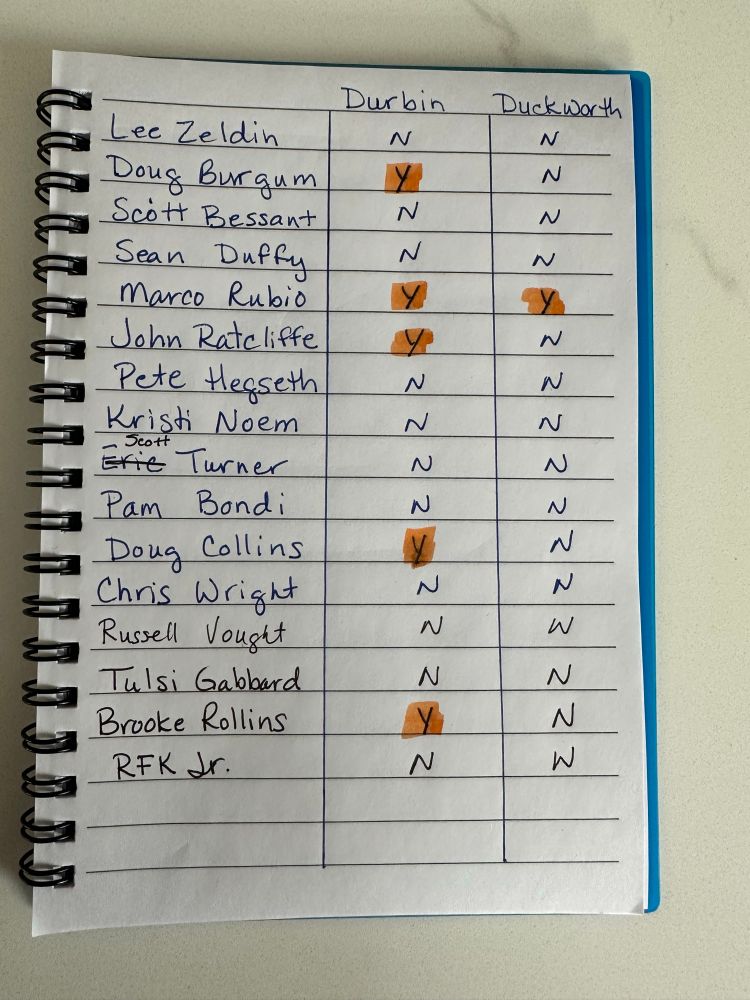 Durbin Duckworth
Lee Zeldin N N
Doug Burgum Y N
Scott Bessant N N
Sean Duffy N N
Marco Rubio Y Y
John Ratcliffe Y N
Pete Hegseth N N
Kristi Noem N N
Scott
Eric Turner N N
Pam Bondi N N
Doug Collins Y N
Chris Wright N N
Russell Vought N W
Tulsi Gabbard N N
Brooke Rollins Y N
RFK Jr. N W